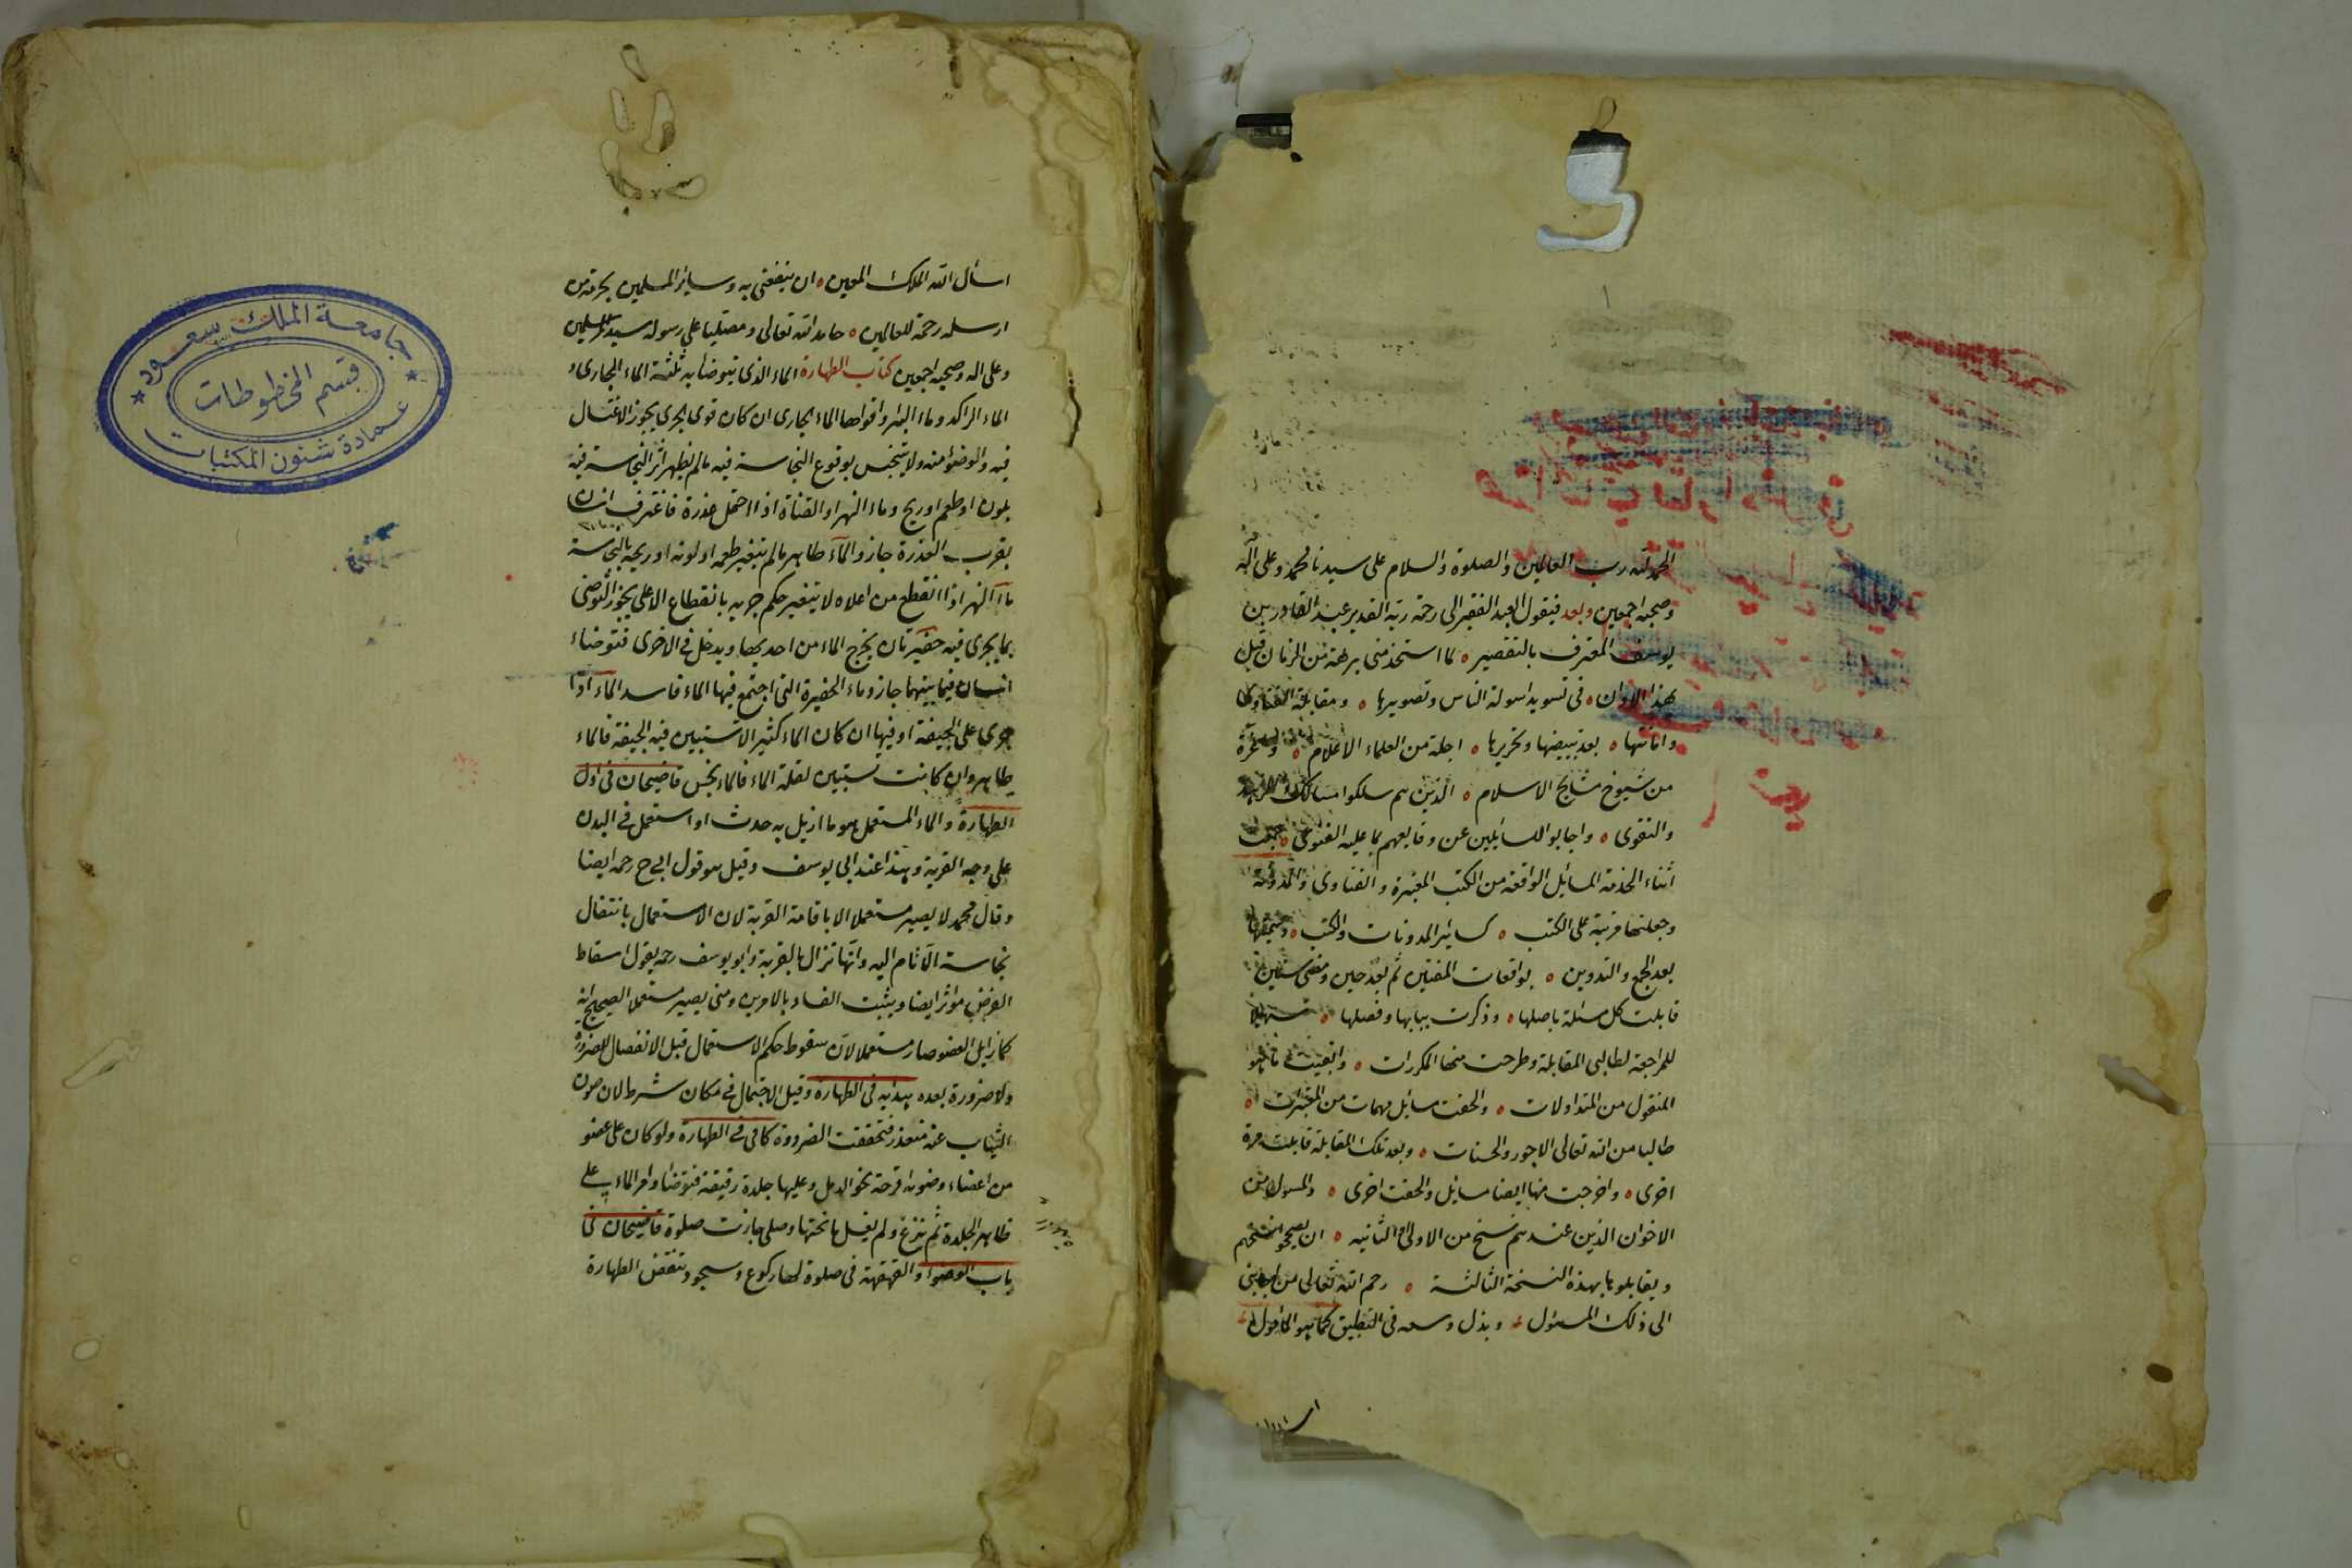 الحمد لله رب العالمين والصلوة والسلام على سيدنا محمد وعلى آله
وصحبه اجمعين وبعد فيقول العبد الفقير الى رحمة ربه القدير عبد القادر بن
يوسف المعترف بالتقصير ه لما استخدمنى برهة من الزمان قبل
هذا الاوان ه فى تسويد اسولة الناس وتصويرها ه ومقابلة الفتاوى
بعد تبييضها وتحريرها ه اجلة من العلماء الاعلام ه
من شيوخ مشايخ الاسلام ه الذين هم سلكوا مسالك
والتقوى ه واجابوا للسايلين عن وقايعهم بما عليه الفتوى ه جمعت
اثناء الخدمة المسائل الواقعة من الكتب المعتبرة والفتاوى والمدونة
وجعلتها مرتبة على الكتب ه كسائر المدونات والكتب ه وسميتها
بعد الجمع والتدوين ه بواقعات المفتين ثم بعد حين ومضى سنين
قابلت كل مسئلة باصلها ه وذكرت ببابها وفصلها ه تسهيلا
للمراجعة لطالبى المقابلة وطرحت منها المكررات ه وابقيت ما هو
المنقول من المتداولات ه والحقت مسايل مهمات من المعتبرات ه
طالبا من الله تعالى الاجور والحسنات ه وبعد تلك المقابلة قابلت مرة
اخرى ه واخرجت منها ايضا مسايل والحقت اخرى ه والمسول من
الاخوان الذين عندهم نسخ من الاولى والثانيه ه ان يصححوا نسختهم
ويقابلوها بهذه النسخة الثالثة ه رحم الله تعالى من اجابنى
الى ذلك المسئول ه وبذل وسعه فى التطبيق كما هو المامول
اسأل الله الملك المعين ه ان ينفعنى به وساير المسلمين بحرمة من
ارسله رحمة للعالمين ه حامدا لله تعالى ومصليا على رسوله سيد المرسلين
وعلى اله وصحبه اجمعين كتاب الطهارة الماء الذى يتوضأ به ثلثة الماء الجارى و
الماء الراكد وماء البئر واقواها الماء الجارى ان كان قوى الجرى يجوز الاغتسال
فيه والوضوء منه ولا يتنجس بوقوع النجاسة فيه مالم يظهر اثر النجاسة فيه
بلون او طعم او ريح وماء النهر او القناة اذا احتمل عذرة فاغترف انسان
بقرب العذرة جاز والماء طاهر مالم يتغير طعمه او لونه او ريحه بالنجاسة
ماء النهر اذا انقطع من اعلاه لا يتغير حكم جريه بانقطاع الاعلى يجوز التوضى
بما يجرى فيه حفيرتان يخرج الماء من احديهما ويدخل فى الاخرى فتوضاء
انسان فيما بينهما جاز وماء الحفيرة التى اجتمع فيها الماء فاسد الماء اذا
جرى على الجيفة او فيها ان كان الماء كثيرا لا تستبين فيه الجيفة فالماء
طاهر وان كانت تستبين لقلة الماء فالماء نجس قاضيخان فى اول
الطهارة والماء المستعمل هو ما ازيل به حدث او استعمل فى البدن
على وجه القربة وهذا عند ابى يوسف وقيل هو قول ابى ح رحمه ايضا
وقال محمد لا يصير مستعملا الا باقامة القربة لان الاستعمال بانتقال
نجاسة الآثام اليه وانها تزال بالقربة وابو يوسف رحمه يقول اسقاط
الفرض مؤثر ايضا ويثبت الفساد بالامرين ومتى يصير مستعملا الصحيح انه
كما زايل العضو صار مستعملا لان سقوط حكم الاستعمال قبل الانفصال للضرورة
ولا ضرورة بعده هدايه فى الطهارة وقيل الاجتماع فى مكان شرط لان صون
الثياب عنه متعذر فتحققت الضرورة كافى فى الطهارة ولو كان على عضو
من اعضاء وضوئه قرحة نحو الدمل وعليها جلدة رقيقة فتوضا وامر الماء على
ظاهر الجلدة ثم نزع ولم يغسل ما تحتها وصلى جازت صلوة قاضيخان فى
باب الوضوء والقهقهة فى صلوة لها ركوع وسجود تنقض الطهارة
جامعة الملك سعود
قسم المخطوطات
عمادة شئون المكتبات